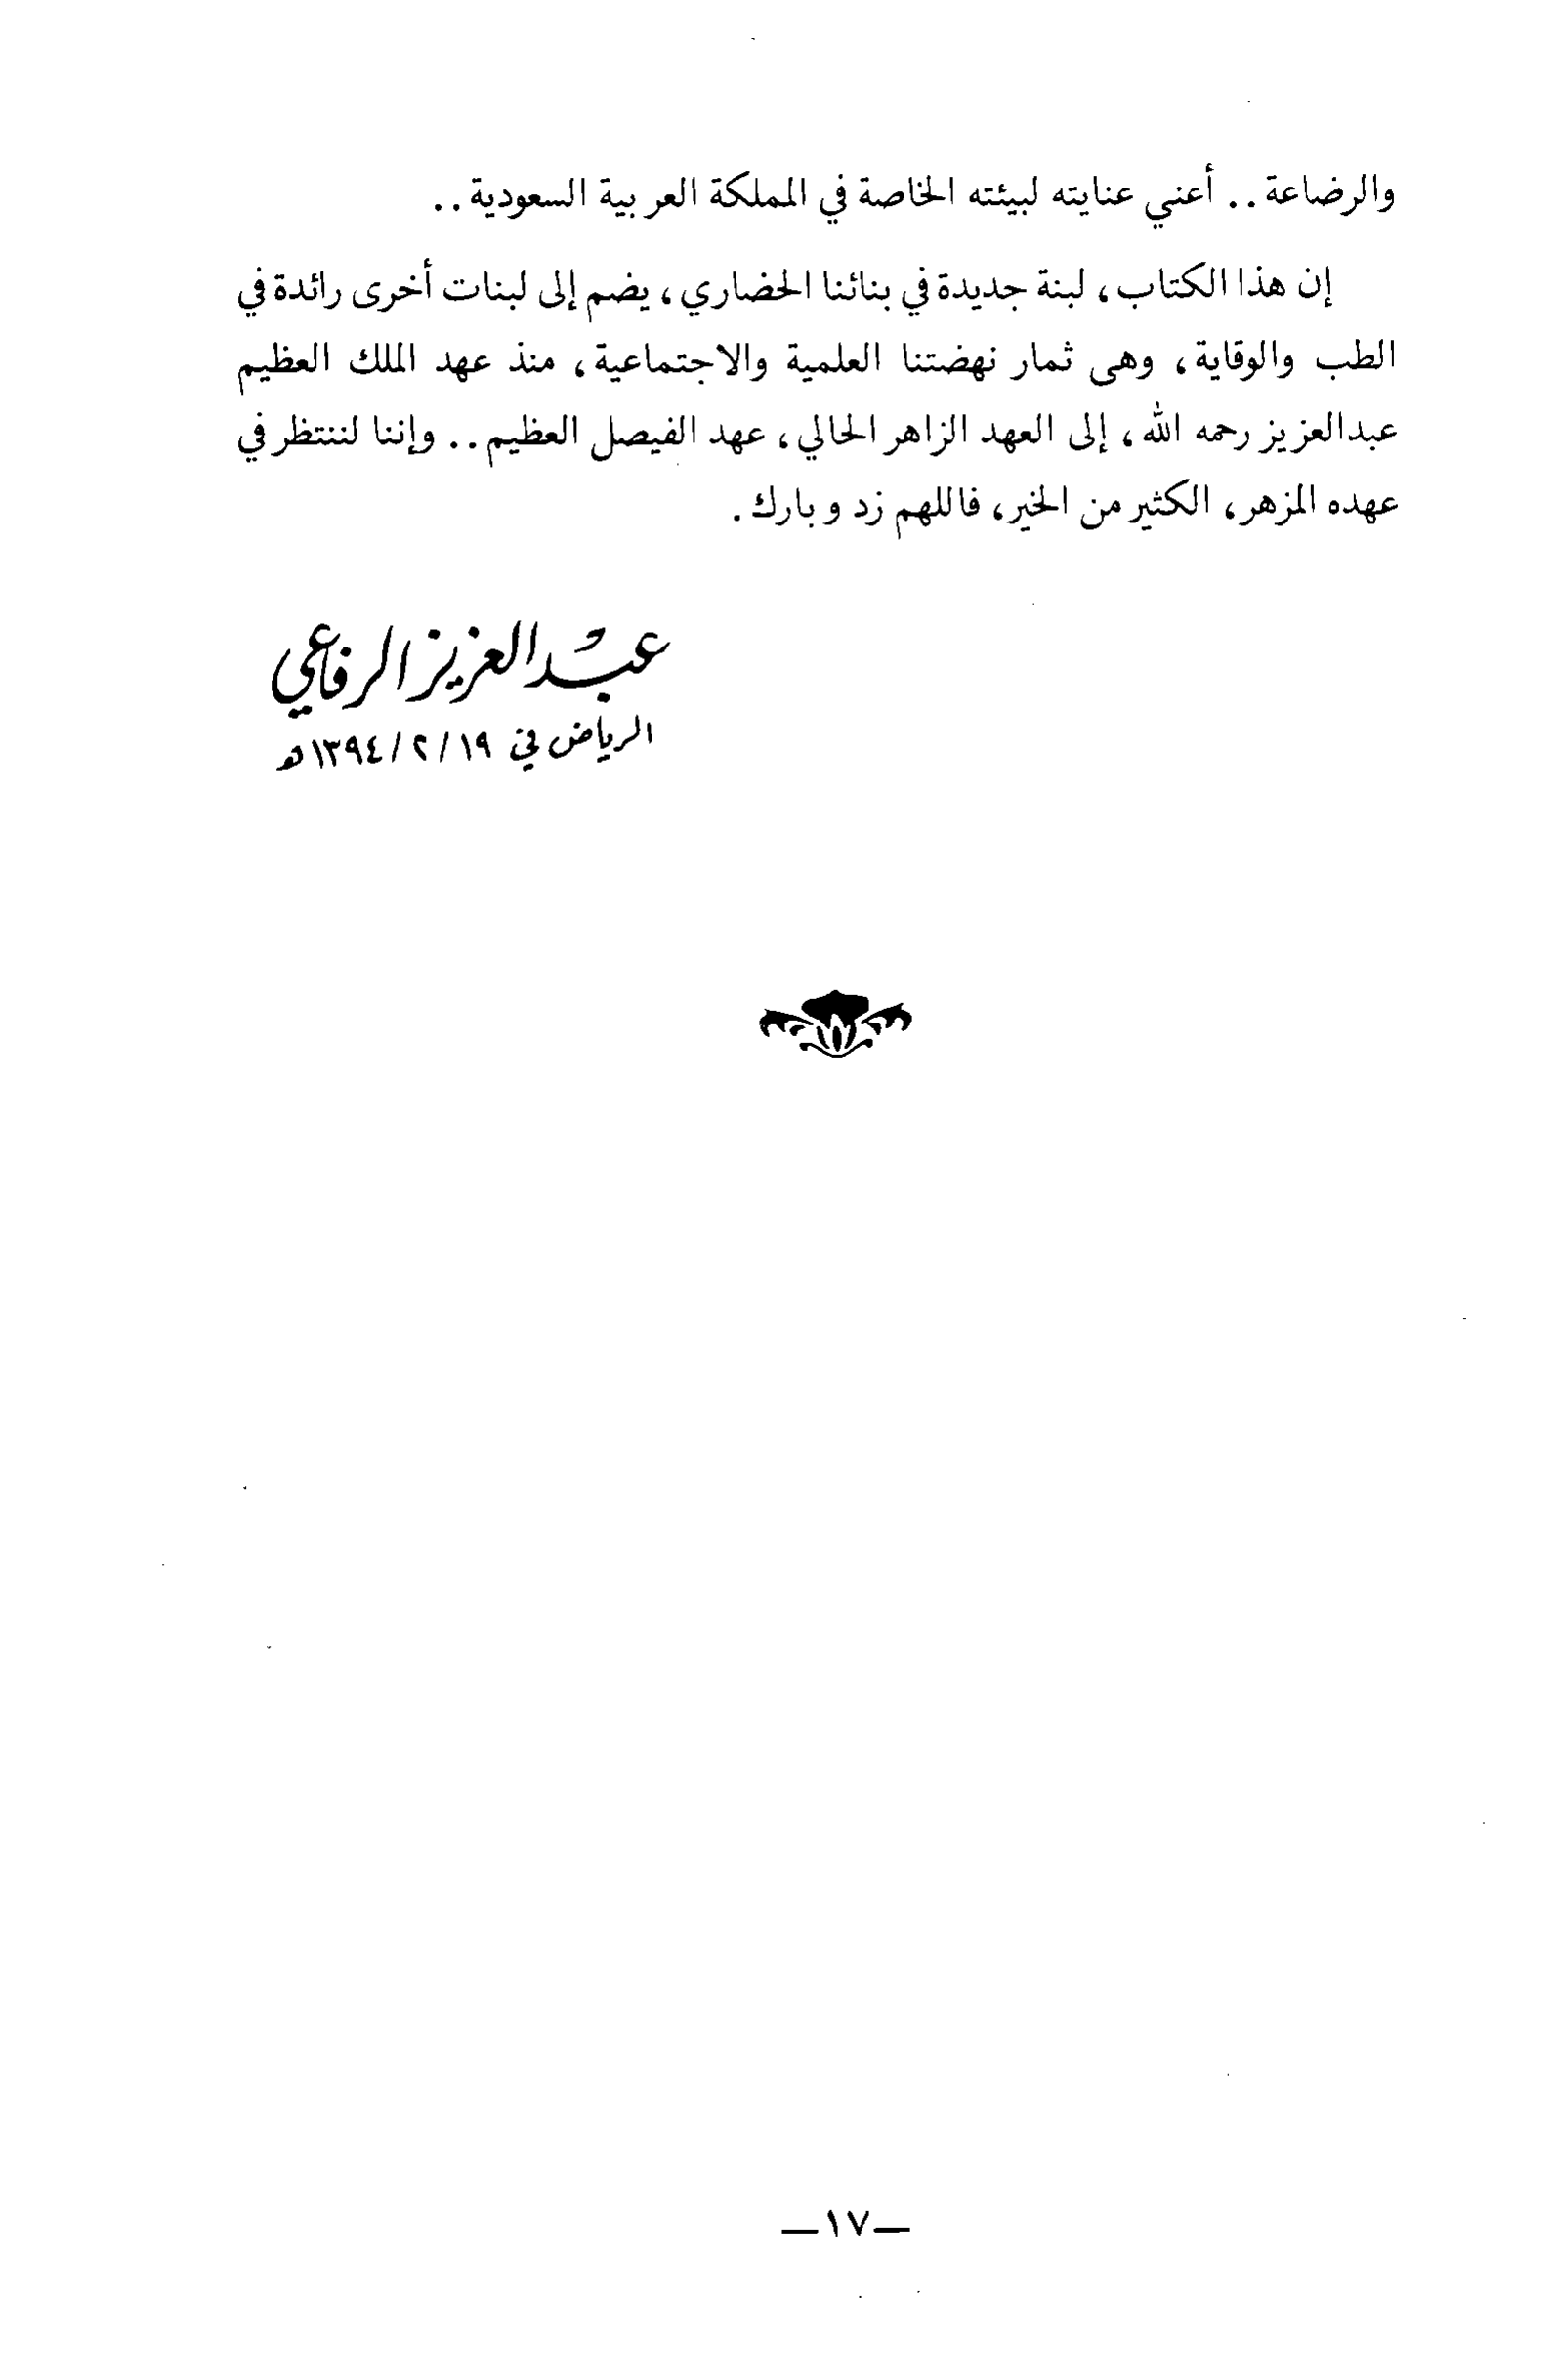 والرضاعة .. أعني عنايته لبيئته الخاصة في المملكة العربية السعودية ..
إن هذا الكتاب، لبنة جديدة في بنائنا الحضاري، يضم إلى لبنات أخرى رائدة في
الطب والوقاية، وهى ثمار نهضتنا العلمية والاجتماعية، منذ عهد الملك العظيم
عبدالعزيز رحمه الله، إلى العهد الزاهر الحالي، عهد الفيصل العظيم .. وإننا لننتظر في
عهده المزهر، الكثير من الخير، فاللهم زد وبارك .
عبد العزيز الرفاعي
الرياض في ١٩/٢/١٣٩٤هـ
—١٧—